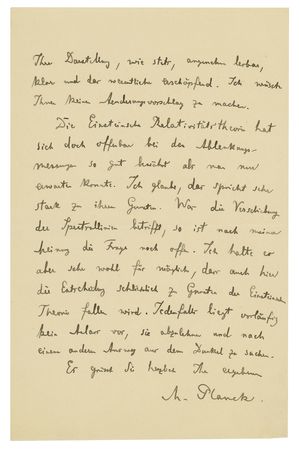 Ihre Darstellung, wie stets, angenehm lesbar,
klar und das wesentliche erschöpfend. Ich wüsste
Ihnen keine Aenderungsvorschläge zu machen.
Die Einsteinsche Relativitätstheorie hat
sich doch offenbar bei den Ablenkungs-
messungen so gut bewährt als man nur
erwarten konnte. Ich glaube, das spricht sehr
stark zu ihren Gunsten. Was die Verschiebung
der Spectrallinien betrifft, so ist nach meiner
Meinung die Frage noch offen. Ich halte es
aber sehr wohl für möglich, dass auch hier
die Entscheidung schliesslich zu Gunsten der Einsteinschen
Theorie fallen wird. Jedenfalls liegt vorläufig
kein Anlass vor, sie abzulehnen und nach
einem andern Ausweg aus dem Dunkel zu suchen.
Es grüsst Sie herzlich Ihr ergebener
M. Planck.